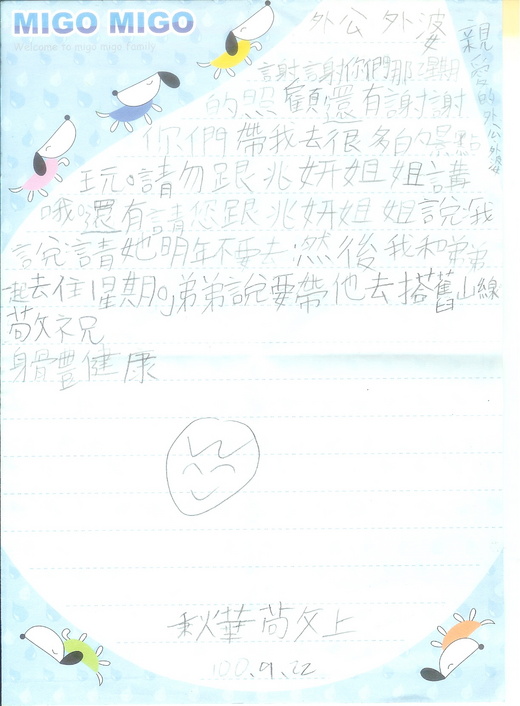 MIGO MIGO
Welcome to migo migo family
親愛的外公外婆
外公 外婆
謝謝你們那1星期
的照顧還有謝謝
你們帶我去很多的景點
玩。請勿跟兆妍姐姐講
哦。還有請您跟兆妍姐姐說:我
說:請她明年不要去,然後我和弟弟
起去住1星期。弟弟說要帶他去搭舊山線
敬祝
身體健康
秋華 敬上
100.9.22